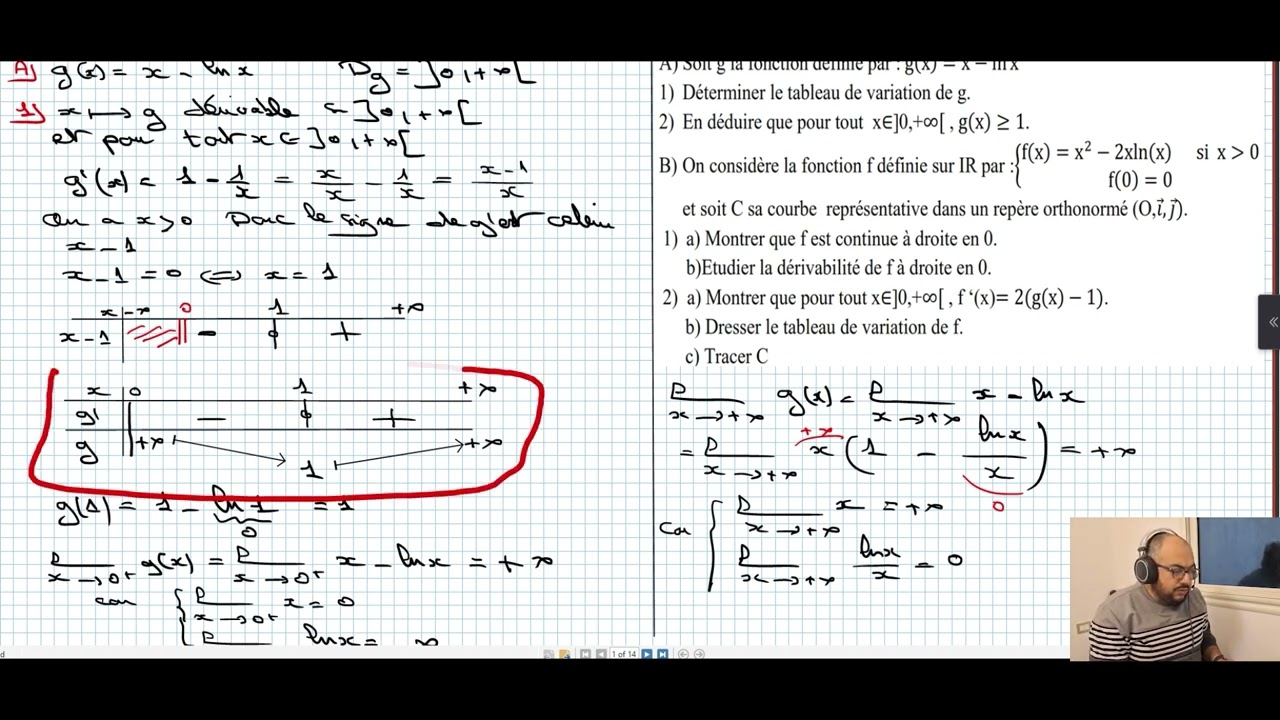 A) g(x) = x - ln x    Dg = ]0,+∞[
1) x ↦ g dérivable ]0,+∞[
et pour tout x ∈ ]0,+∞[
g'(x) = 1 - 1/x = x/x - 1/x = x-1/x
On a x>0 Donc le signe de g' est celui
x - 1
x - 1 = 0 ⟺ x = 1
x -∞ 0 1 +∞
x-1 - 0 +
x 0 1 +∞
g' - 0 +
g +∞ 1 +∞
g(1) = 1 - ln 1 = 1
0
x→0+ g(x) = x→0+ x - ln x = +∞
car
x→0+ x = 0
ln x = ∞
A) Soit g la fonction définie par : g(x) = x − ln x
1) Déterminer le tableau de variation de g.
2) En déduire que pour tout x∈]0,+∞[ , g(x) ≥ 1.
B) On considère la fonction f définie sur IR par : {f(x) = x² − 2xln(x) si x > 0
f(0) = 0
et soit C sa courbe représentative dans un repère orthonormé (O,i⃗,j⃗).
1) a) Montrer que f est continue à droite en 0.
b)Etudier la dérivabilité de f à droite en 0.
2) a) Montrer que pour tout x∈]0,+∞[ , f ‘(x)= 2(g(x) − 1).
b) Dresser le tableau de variation de f.
c) Tracer C
x→+∞ g(x) = x→+∞ x - ln x
= x→+∞ x (1 - ln x/x) = +∞
+∞
0
Car
x→+∞ x = +∞
x→+∞ ln x/x = 0
1 of 14